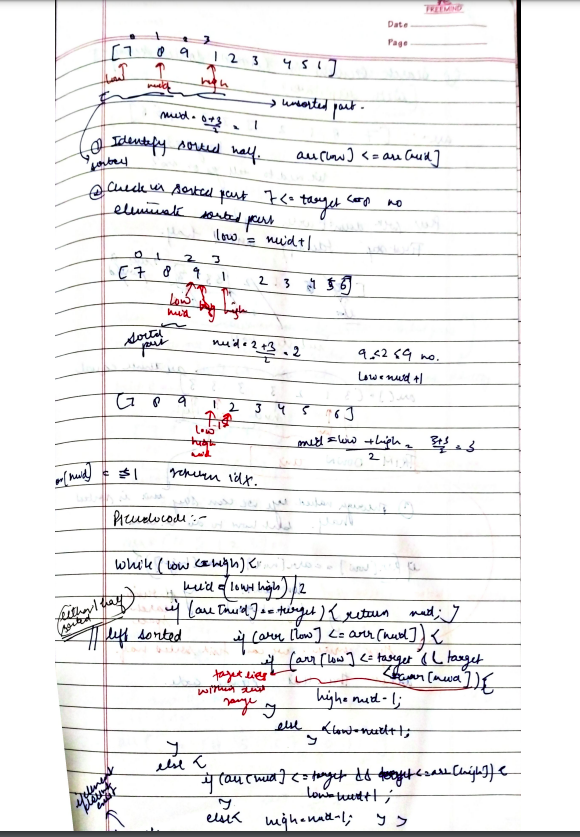 FREEMIND
Date
Page
0 1 2 3
[7 8 9 1 2 3 4 5 6]
low mid high
→ unsorted part.
mid = 0+3/2 = 1
① Identify sorted half. arr[low] <= arr[mid]
sorted
② Check in sorted part 7 <= target <= 8 no
eliminate sorted part
low = mid+1
0 1 2 3
[7 8 9 1 2 3 4 5 6]
low high
mid
sorted part
mid = 2+3/2 = 2 9 ≤ 2 ≤ 9 no.
low = mid+1
[7 8 9 1 2 3 4 5 6]
low
high
mid
mid = low + high / 2 = 3+3/2 = 3
arr[mid] = 1 return idx.
Pseudocode :-
while (low <= high) {
mid = (low+high)/2
if (arr[mid] == target) { return mid; }
either 1 half sorted
|| left sorted if (arr[low] <= arr[mid]) {
if (arr[low] <= target && target
<= arr[mid]) {
target lies within this range
high = mid-1;
}
else { low = mid+1;
}
}
else {
if (arr[mid] <= target && target <= arr[high]) {
low = mid+1;
}
else { high = mid-1; } }
if element